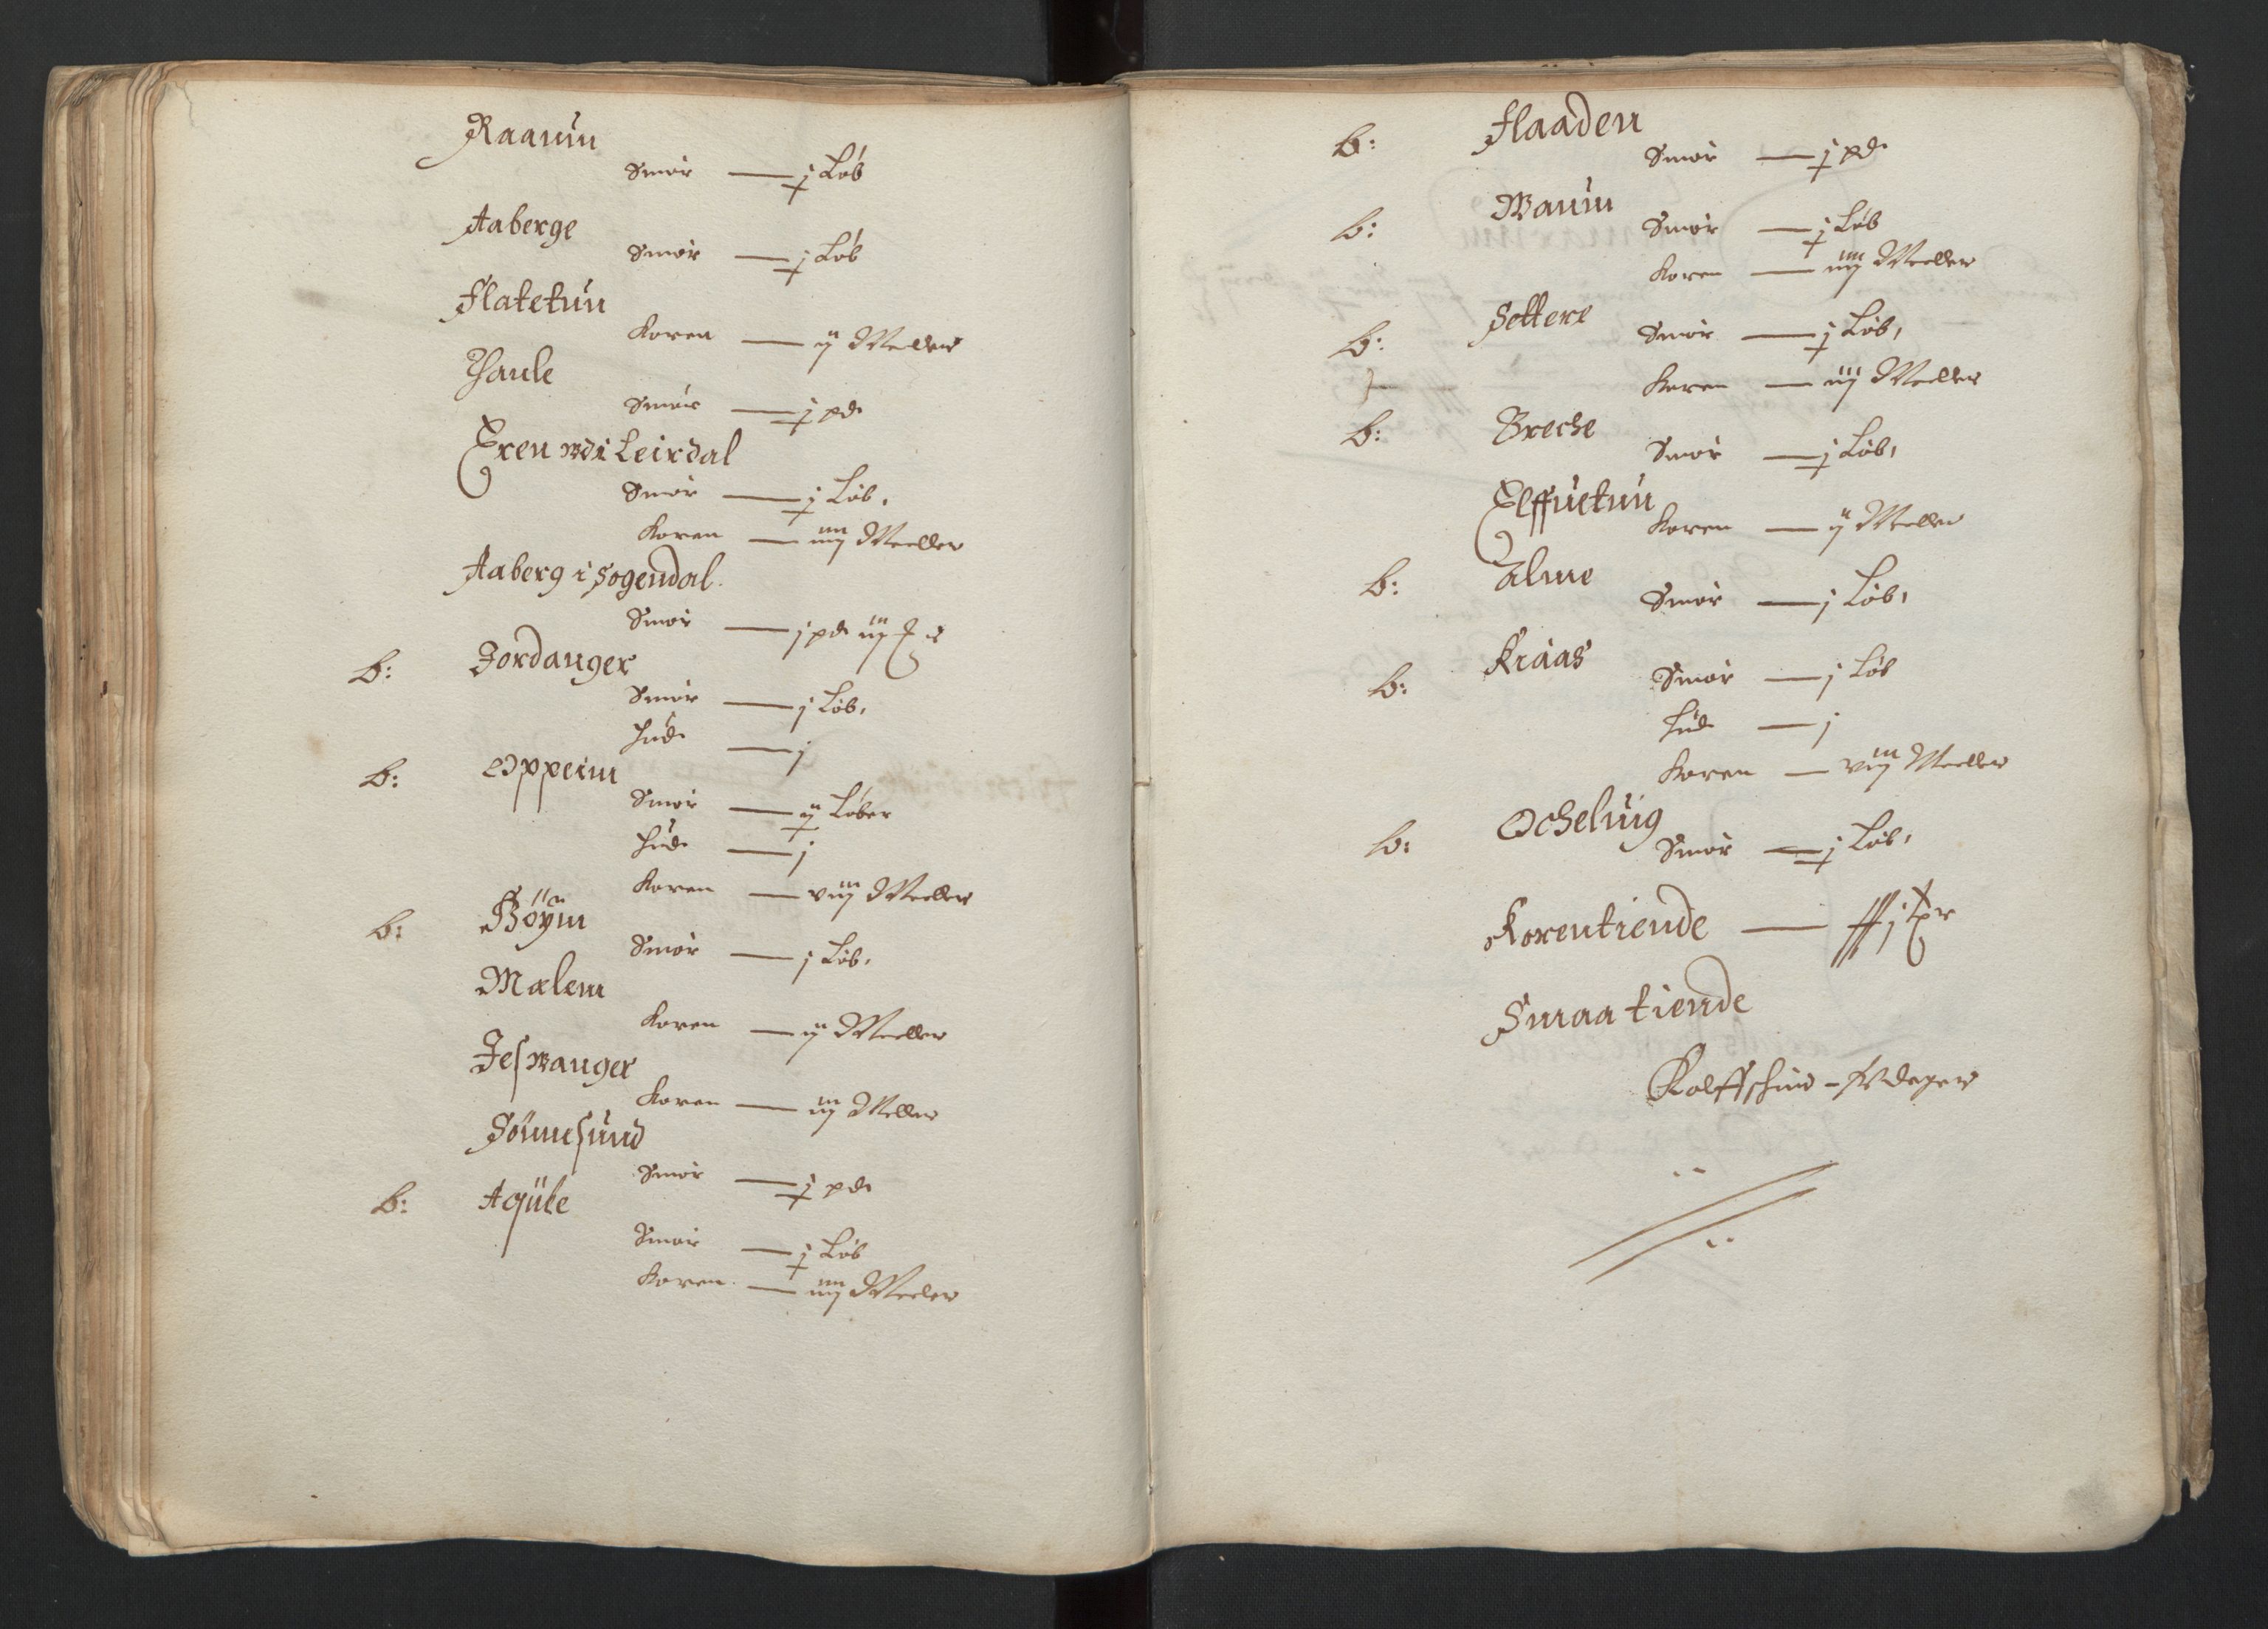 Raaum
Smør — j Løb
Aaberge
Smør — j Løb
Flatetun
Koren — ij Meeller
Haule
Smør — j pd
Eren wdi Leirdal
Smør — j Løb,
Koren — iiij Meeller
Aaberg i Sogendal.
Smør — j pd iij
b: Jordanger
Smør — j Løb,
Hud — j
b: Oppeim
Smør — ij Løber
Hud — j
Koren — viij Meeller
b: Böÿm
Smør — j Løb,
Mælem
Koren — ij Meeller
Jeswanger
Koren — iij Meller
Sömesund
Smør — j pd
b: Aqüle
Smør — j Løb
Koren — iiij Meeler
b: Flaaden
Smør — j pd
b: Waum
Smør — j Løb
Koren — iiij Meeller
b: Settere
Smør — j Løb,
Koren — iij Meeller
b: Breche
Smør — j Løb,
Elffuetun
Koren — ij Meeller
b: Alme
Smør — j Løb,
b: Kraas
Smør — j Løb
Hud — j
Koren — viij Meeller
b: Ocheluig
Smør — j Løb,
Korentiende —
Smaa tiende
Kalffschind –